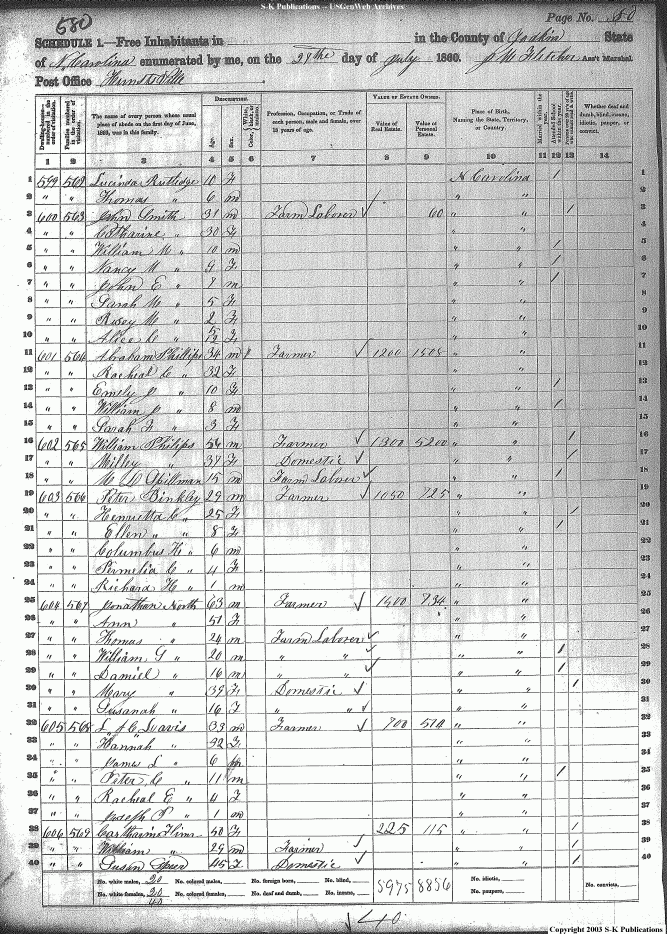 S-K Publications -- USGenWeb Archives
580
Page No. 80
SCHEDULE 1.—Free Inhabitants in in the County of Yadkin State
of N. Carolina enumerated by me, on the 28th day of July 1860. J W Fletcher Ass't Marshal.
Post Office Huntsville
Dwelling-houses numbered in the order of visitation.
Families numbered in the order of visitation.
The name of every person whose usual place of abode on the first day of June, 1860, was in this family.
DESCRIPTION.
Age.
Sex.
Profession, Occupation, or Trade of each person, male and female, over 15 years of age.
VALUE OF ESTATE OWNED.
Value of Real Estate.
Value of Personal Estate.
Place of Birth, Naming the State, Territory, or Country.
Married within the year.
Attended School within the year.
Whether deaf and dumb, blind, insane, idiotic, pauper, or convict.
1 2 3 4 5 6 7 8 9 10 11 12 13 14
1 599 562 Lucinda Rutledge 10 F N Carolina / 1
2 " " Thomas " 6 m " " 2
3 600 563 John Smith 31 m Farm Laborer 60 " " / 3
4 " " Catharine " 30 F " " 4
5 " " William M " 10 m " " / 5
6 " " Nancy M " 9 F " " / 6
7 " " John E " 7 m " " / 7
8 " " Sarah M " 5 F " " 8
9 " " Rosey M " 2 F " " 9
10 " " Alice C " 5/12 F " " 10
11 601 564 Abraham Phillips 34 m Farmer 1200 1505 " " 11
12 " " Racheal C " 32 F " " 12
13 " " Emely J " 10 F " " / 13
14 " " William J " 8 m " " / 14
15 " " Sarah F " 3 F " " 15
16 602 565 William Philips 54 m Farmer 1300 5200 " " / 16
17 " " Milley " 37 F Domestic " " / 17
18 " " 15 m Farm Laborer " " / 18
19 603 566 Peter Binkley 29 m Farmer 1050 725 " " 19
20 " " Henrietta C " 25 F " " / 20
21 " " Ellen " " 8 F " " / 21
22 " " Columbus H " 6 m " " 22
23 " " Permelia C " 4 F " " 23
24 " " Richard H " 1 m " " 24
25 604 567 Jonathan North 63 m Farmer 1400 734 " " 25
26 " " Ann " 51 F " " 26
27 " " Thomas " 24 m Farm Laborer " " 27
28 " " William G " 20 m " " " " / 28
29 " " Daniel " 16 m " " " " / 29
30 " " Mary " 39 F Domestic " " / 30
31 " " Susanah " 16 F " " " " 31
32 605 568 L A C Davis 33 m Farmer 700 574 " " 32
33 " " Hannah " 32 F " " 33
34 " " James L " 6 m " " 34
35 " " Peter C " 11 m " " / 35
36 " " Racheal E " 4 F " " 36
37 " " Joseph P " 1 m " " 37
38 606 569 50 F 225 115 " " / 38
39 " " William " 29 m Farmer " " / 39
40 " " Susan Speer 45 F Domestic " " / 40
No. white males, 20 No. colored males, No. foreign born, No. blind, 5975 8856 No. idiotic, No. convicts,
No. white females, 20 No. colored females, No. deaf and dumb, No. insane, No. paupers,
40
40
Copyright 2003 S-K Publications